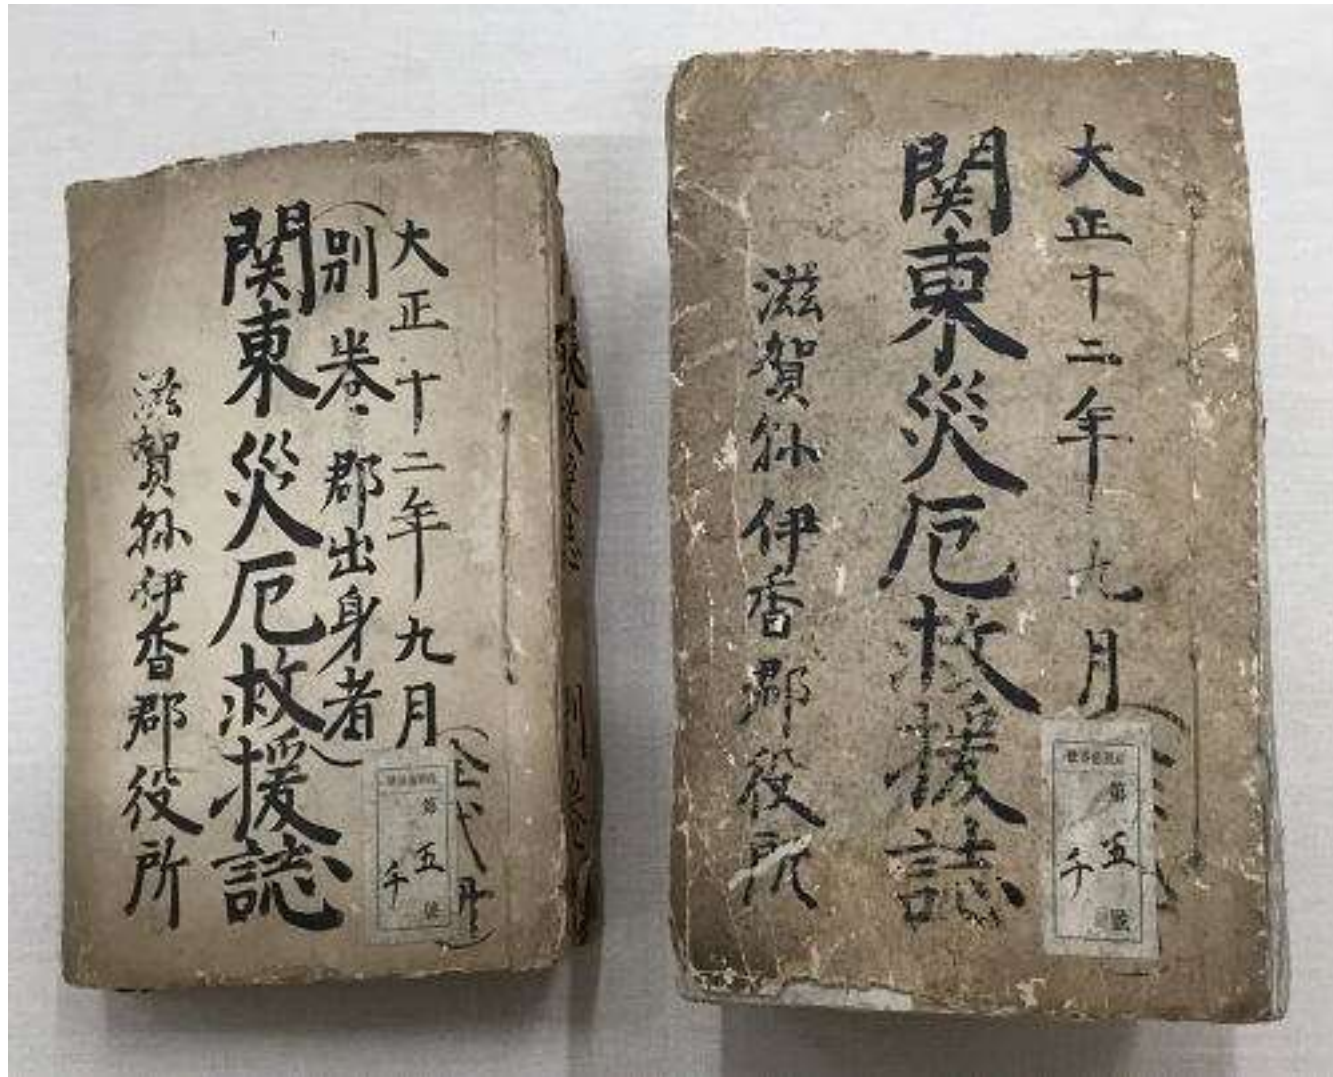 大正十二年九月
(別巻・郡出身者)
関東災厄救援誌
滋賀縣伊香郡役所
第五號
千
大正十二年九月
関東災厄救援誌
滋賀縣伊香郡役所
第五號
千